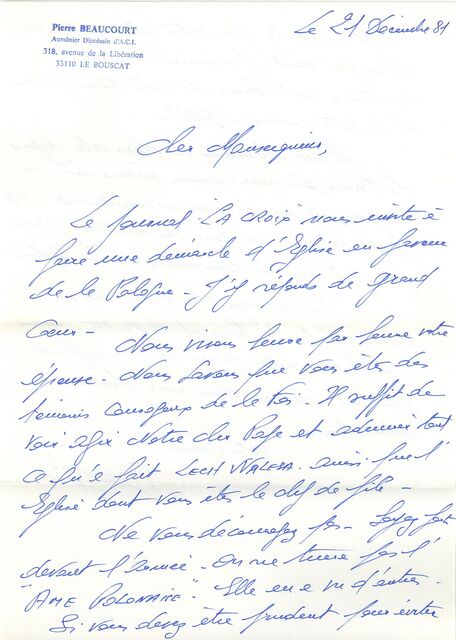 Pierre BEAUCOURT
Aumônier Diocésain d'A.C.I.
318, avenue de la Libération
33110 LE BOUSCAT
Le 21 Décembre 81
Cher Monseigneur,
Le journal "LA CROIX" nous invite à
faire une démarche d'Eglise en faveur
de la Pologne - J'y réponds de grand
Coeur -
Nous vivons heure par heure votre
épreuve - Nous savons que vous êtes des
témoins courageux de la Foi - Il suffit de
voir agir Notre cher Pape et admirer tout
ce qu'a fait LECH WALESA. ainsi que l'
Eglise dont vous êtes le chef de file -
Ne vous découragez pas - Soyez fort
devant l'ennemi - On ne tuera pas l'
"AME POLONAISE". Elle en a vu d'autres -
Si vous devez être prudent pour éviter